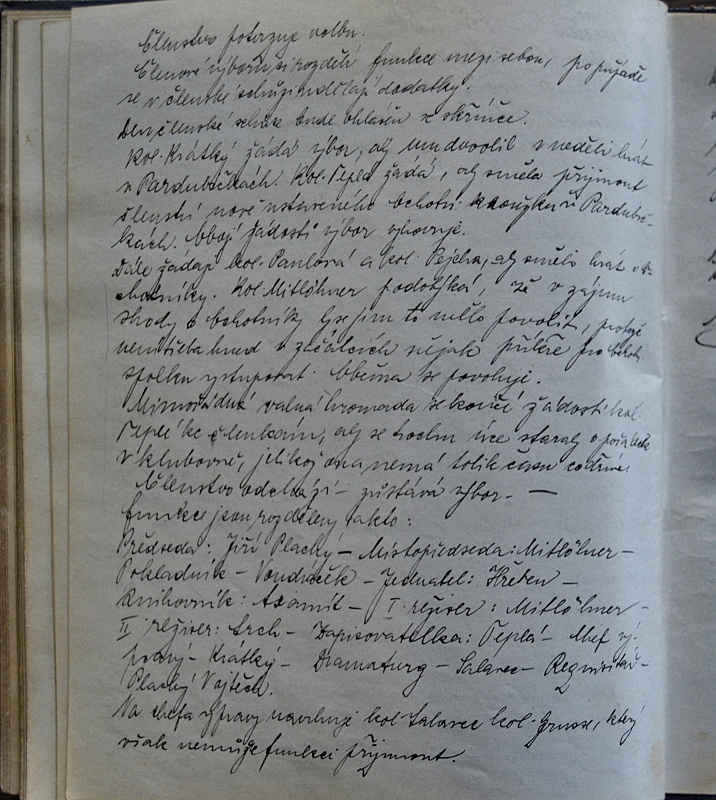 Členstvo potvrzuje volbu.
Členové výboru si rozdělí funkce mezi sebou, po případě
se v členské schůzi udělají dodatky.
Den členské schůze bude ohlášen ve skřínce.
Kol. Krátký žádá výbor, aby mu dovolil v neděli hrát
v Pardubičkách. Kol. Teplá žádá, aby směla přijmout
členství nově ustaveného ochotn. kroužku v Pardubič-
kách. Obojí žádosti výbor vyhovuje.
Dále žádají kol. Paulová a kol. Pejcha, aby směli hrát s
ochotníky. Kol. Mitlöhner podotýká, že v zájmu
shody s ochotníky by se jim to mělo povolit, protože
není třeba hned v začátcích nějak příkře pro ochot.
spolku vystupovat. Oběma se povoluje.
Mimořádná valná hromada se končí žádostí kol.
Teplé ke členkám, aby se trochu více staraly o pořádek
v klubovně, jelikož ona nemá tolik času co dříve.
Členstvo odchází – zůstává výbor. —
Funkce jsou rozděleny takto:
Předseda: Jiří Plachý – Místopředseda: Mitlöhner –
Pokladník – Vondráček – Jednatel: Křeten –
Knihovník: Axamit – I. režiser: Mitlöhner –
II. režiser: Lrch – Zapisovatelka: Teplá – Šéf vý-
pravy – Krátký – Dramaturg – Salavec – Requisitář –
Plachý Vojtěch.
Na chefa výpravy navrhuje kol. Salavec kol. Grusse, který
však nemůže funkci přijmout.